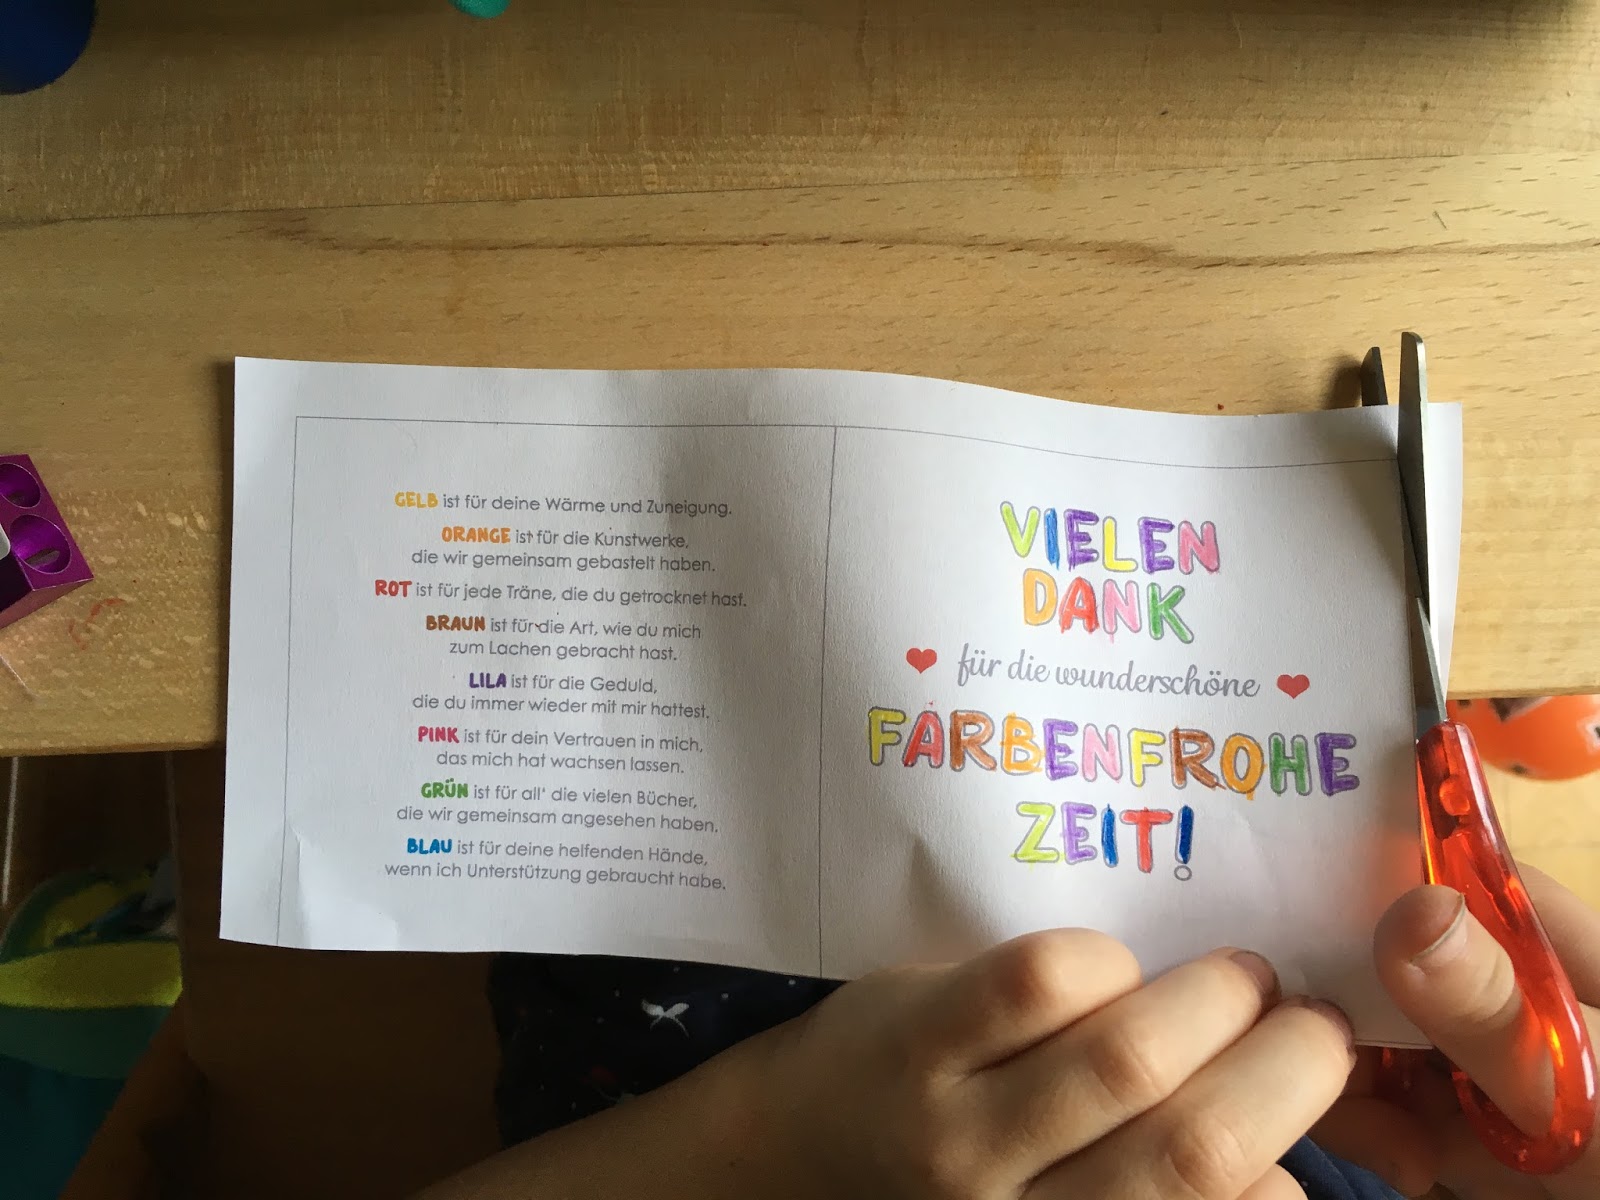 GELB ist für deine Wärme und Zuneigung.
ORANGE ist für die Kunstwerke,
die wir gemeinsam gebastelt haben.
ROT ist für jede Träne, die du getrocknet hast.
BRAUN ist für die Art, wie du mich
zum Lachen gebracht hast.
LILA ist für die Geduld,
die du immer wieder mit mir hattest.
PINK ist für dein Vertrauen in mich,
das mich hat wachsen lassen.
GRÜN ist für all' die vielen Bücher,
die wir gemeinsam angesehen haben.
BLAU ist für deine helfenden Hände,
wenn ich Unterstützung gebraucht habe.
VIELEN
DANK
für die wunderschöne
FARBENFROHE
ZEIT!